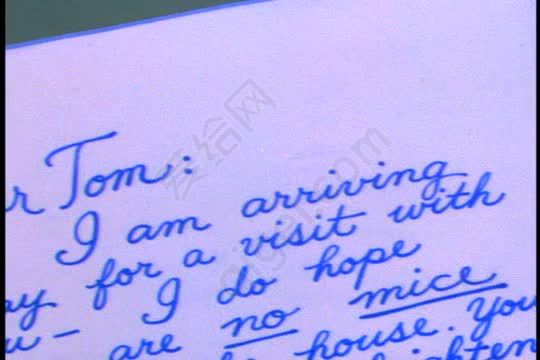 r Tom:
I am arriving
ay for a visit with
u – I do hope
are no mice
house. You
爱给网
aigei.com